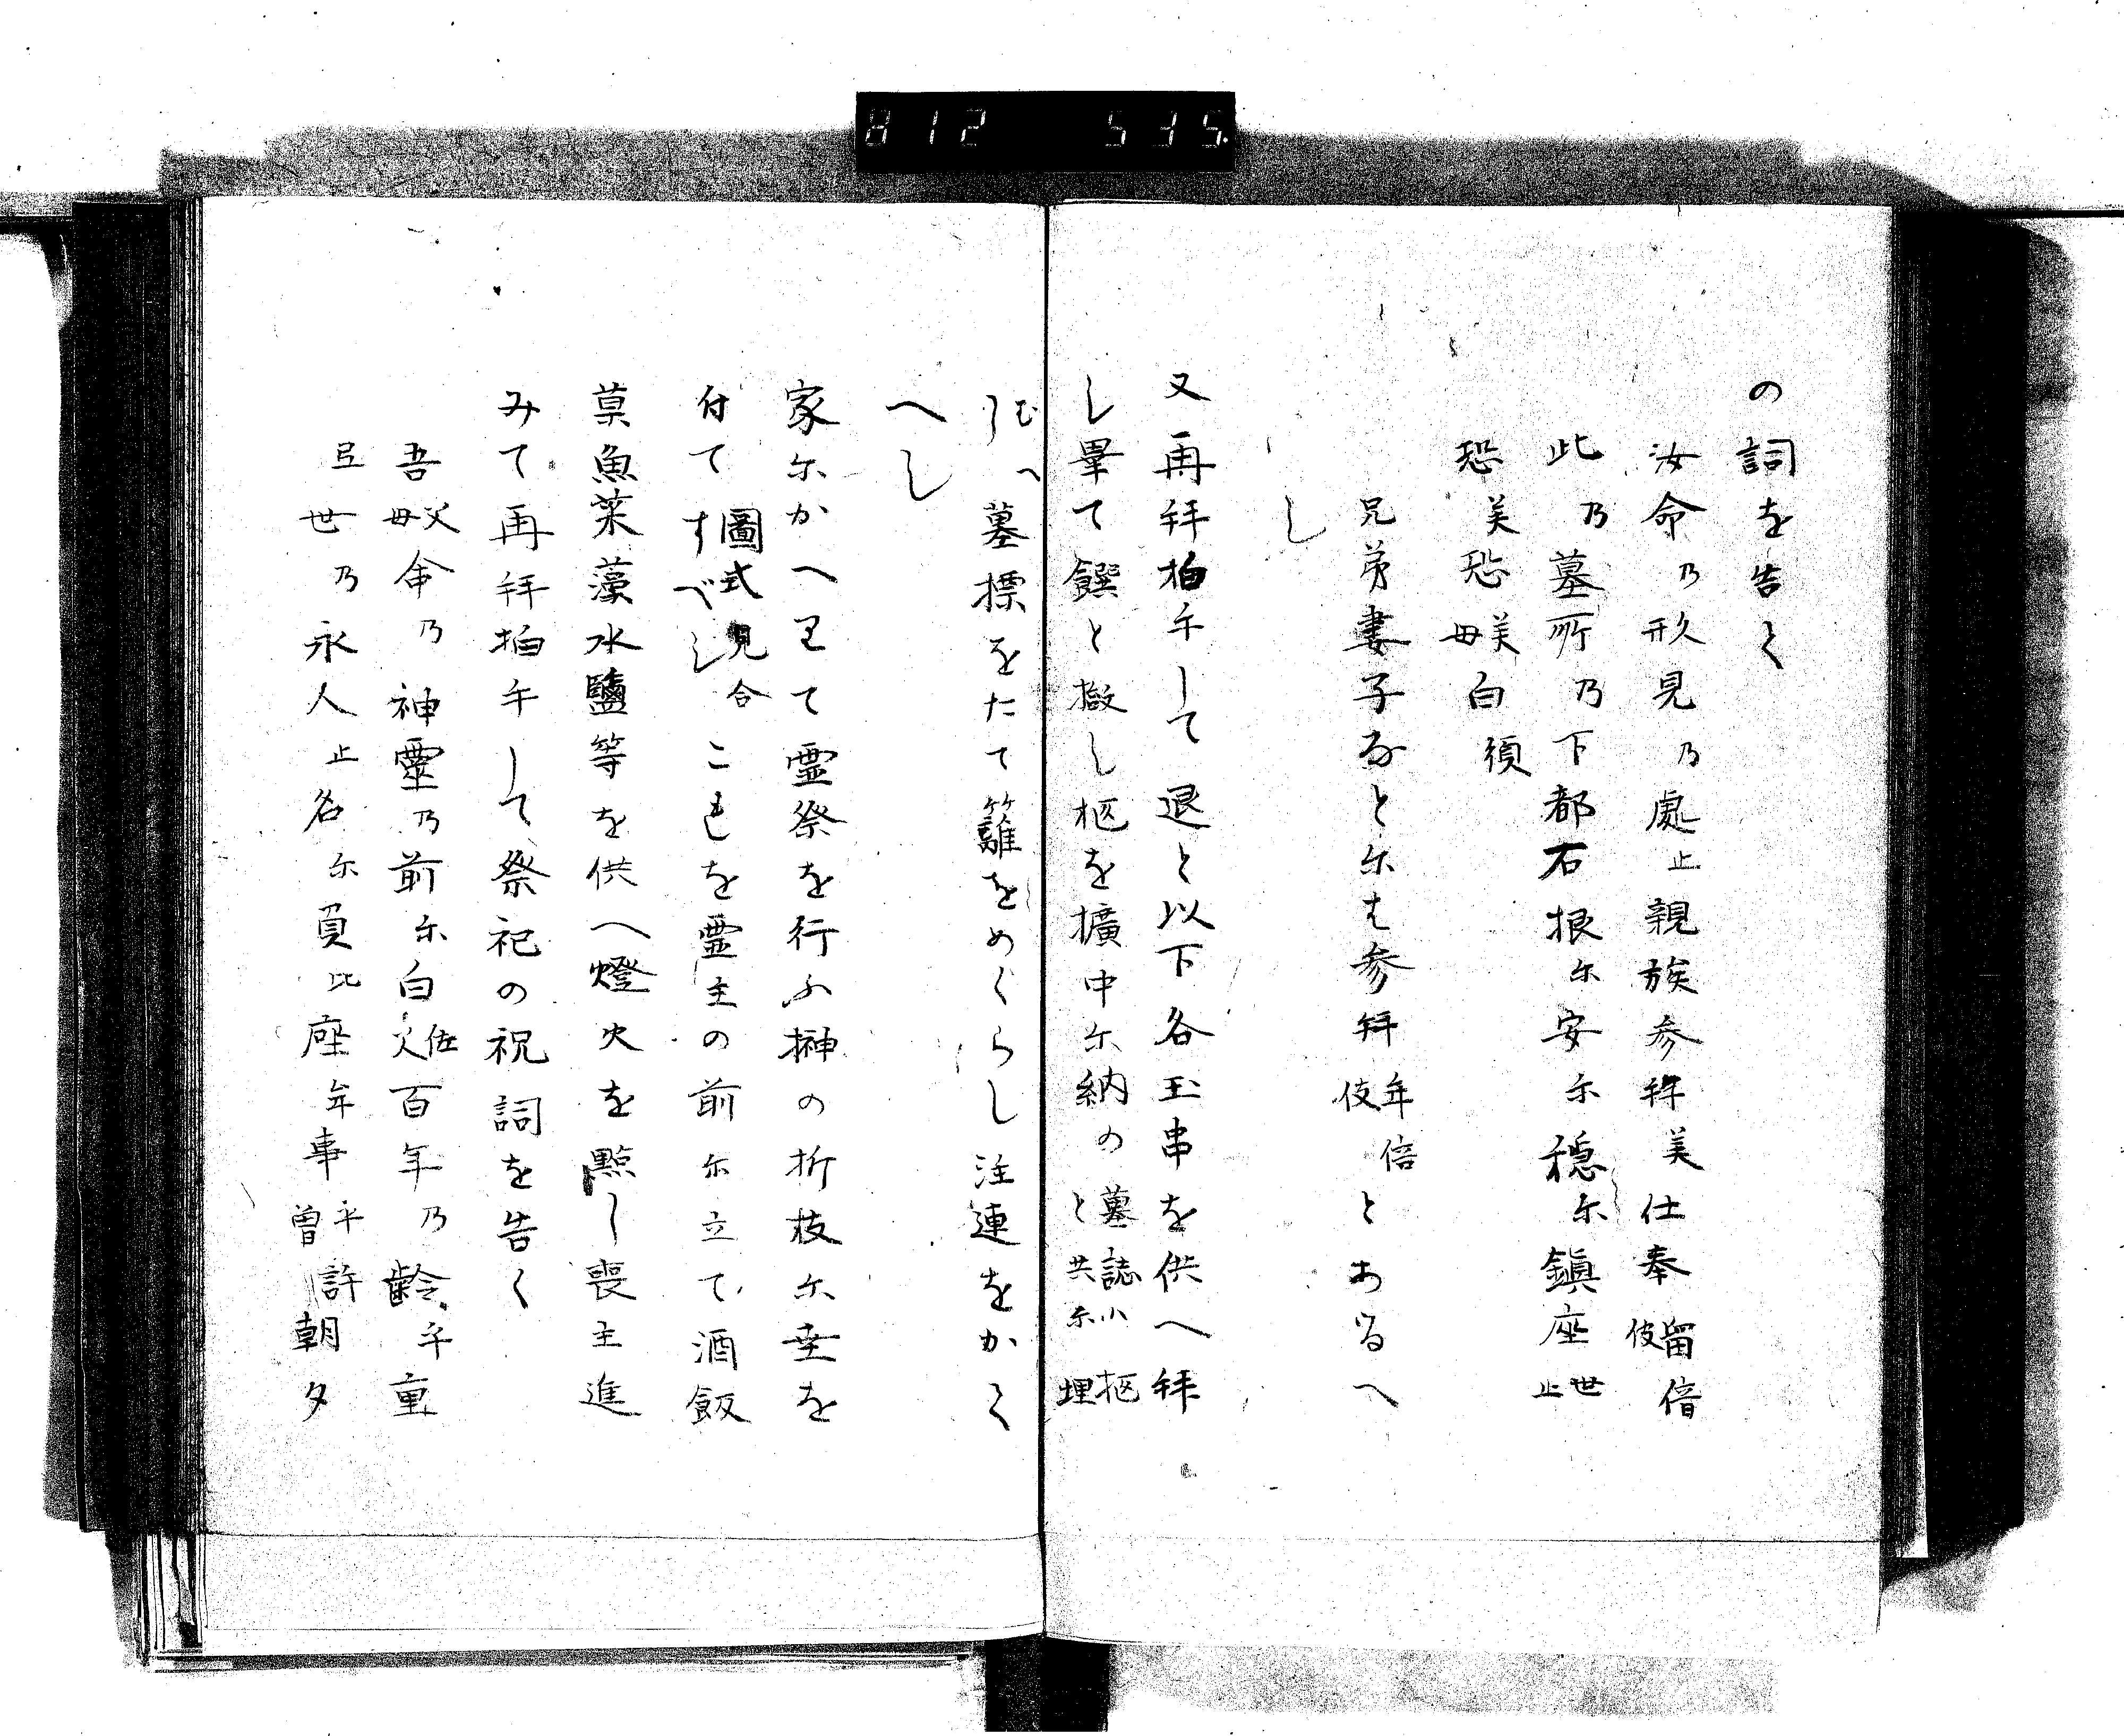 812 535.
の詞を告く
汝命乃形見乃處止親族参拜美仕奉留倍伎
此乃墓所乃下都石根尓安尓穏尓鎮座世止
恐美恐美毋白須
兄弟妻子なと尓は参拜年倍伎とあるへ
し
又再拜拍手して退と以下各玉串を供へ拜
し畢て饌と撤し柩を擴中尓納の墓誌小柩と共尓埋
むへし墓標をたて籬をめくらし注連をかく
へし
家尓かへりて霊祭を行ふ榊の折枝尓垂を
付て圖式見合すべしこれを霊主の前尓立て酒飯
菓魚菜藻水鹽等を供へ燈火を點し喪主進
みて再拜拍手して祭祀の祝詞を告く
吾父母命乃神靈乃前尓白佐久百年乃齢乎重
弖世乃永人止名尓負比座年事乎許曽朝夕